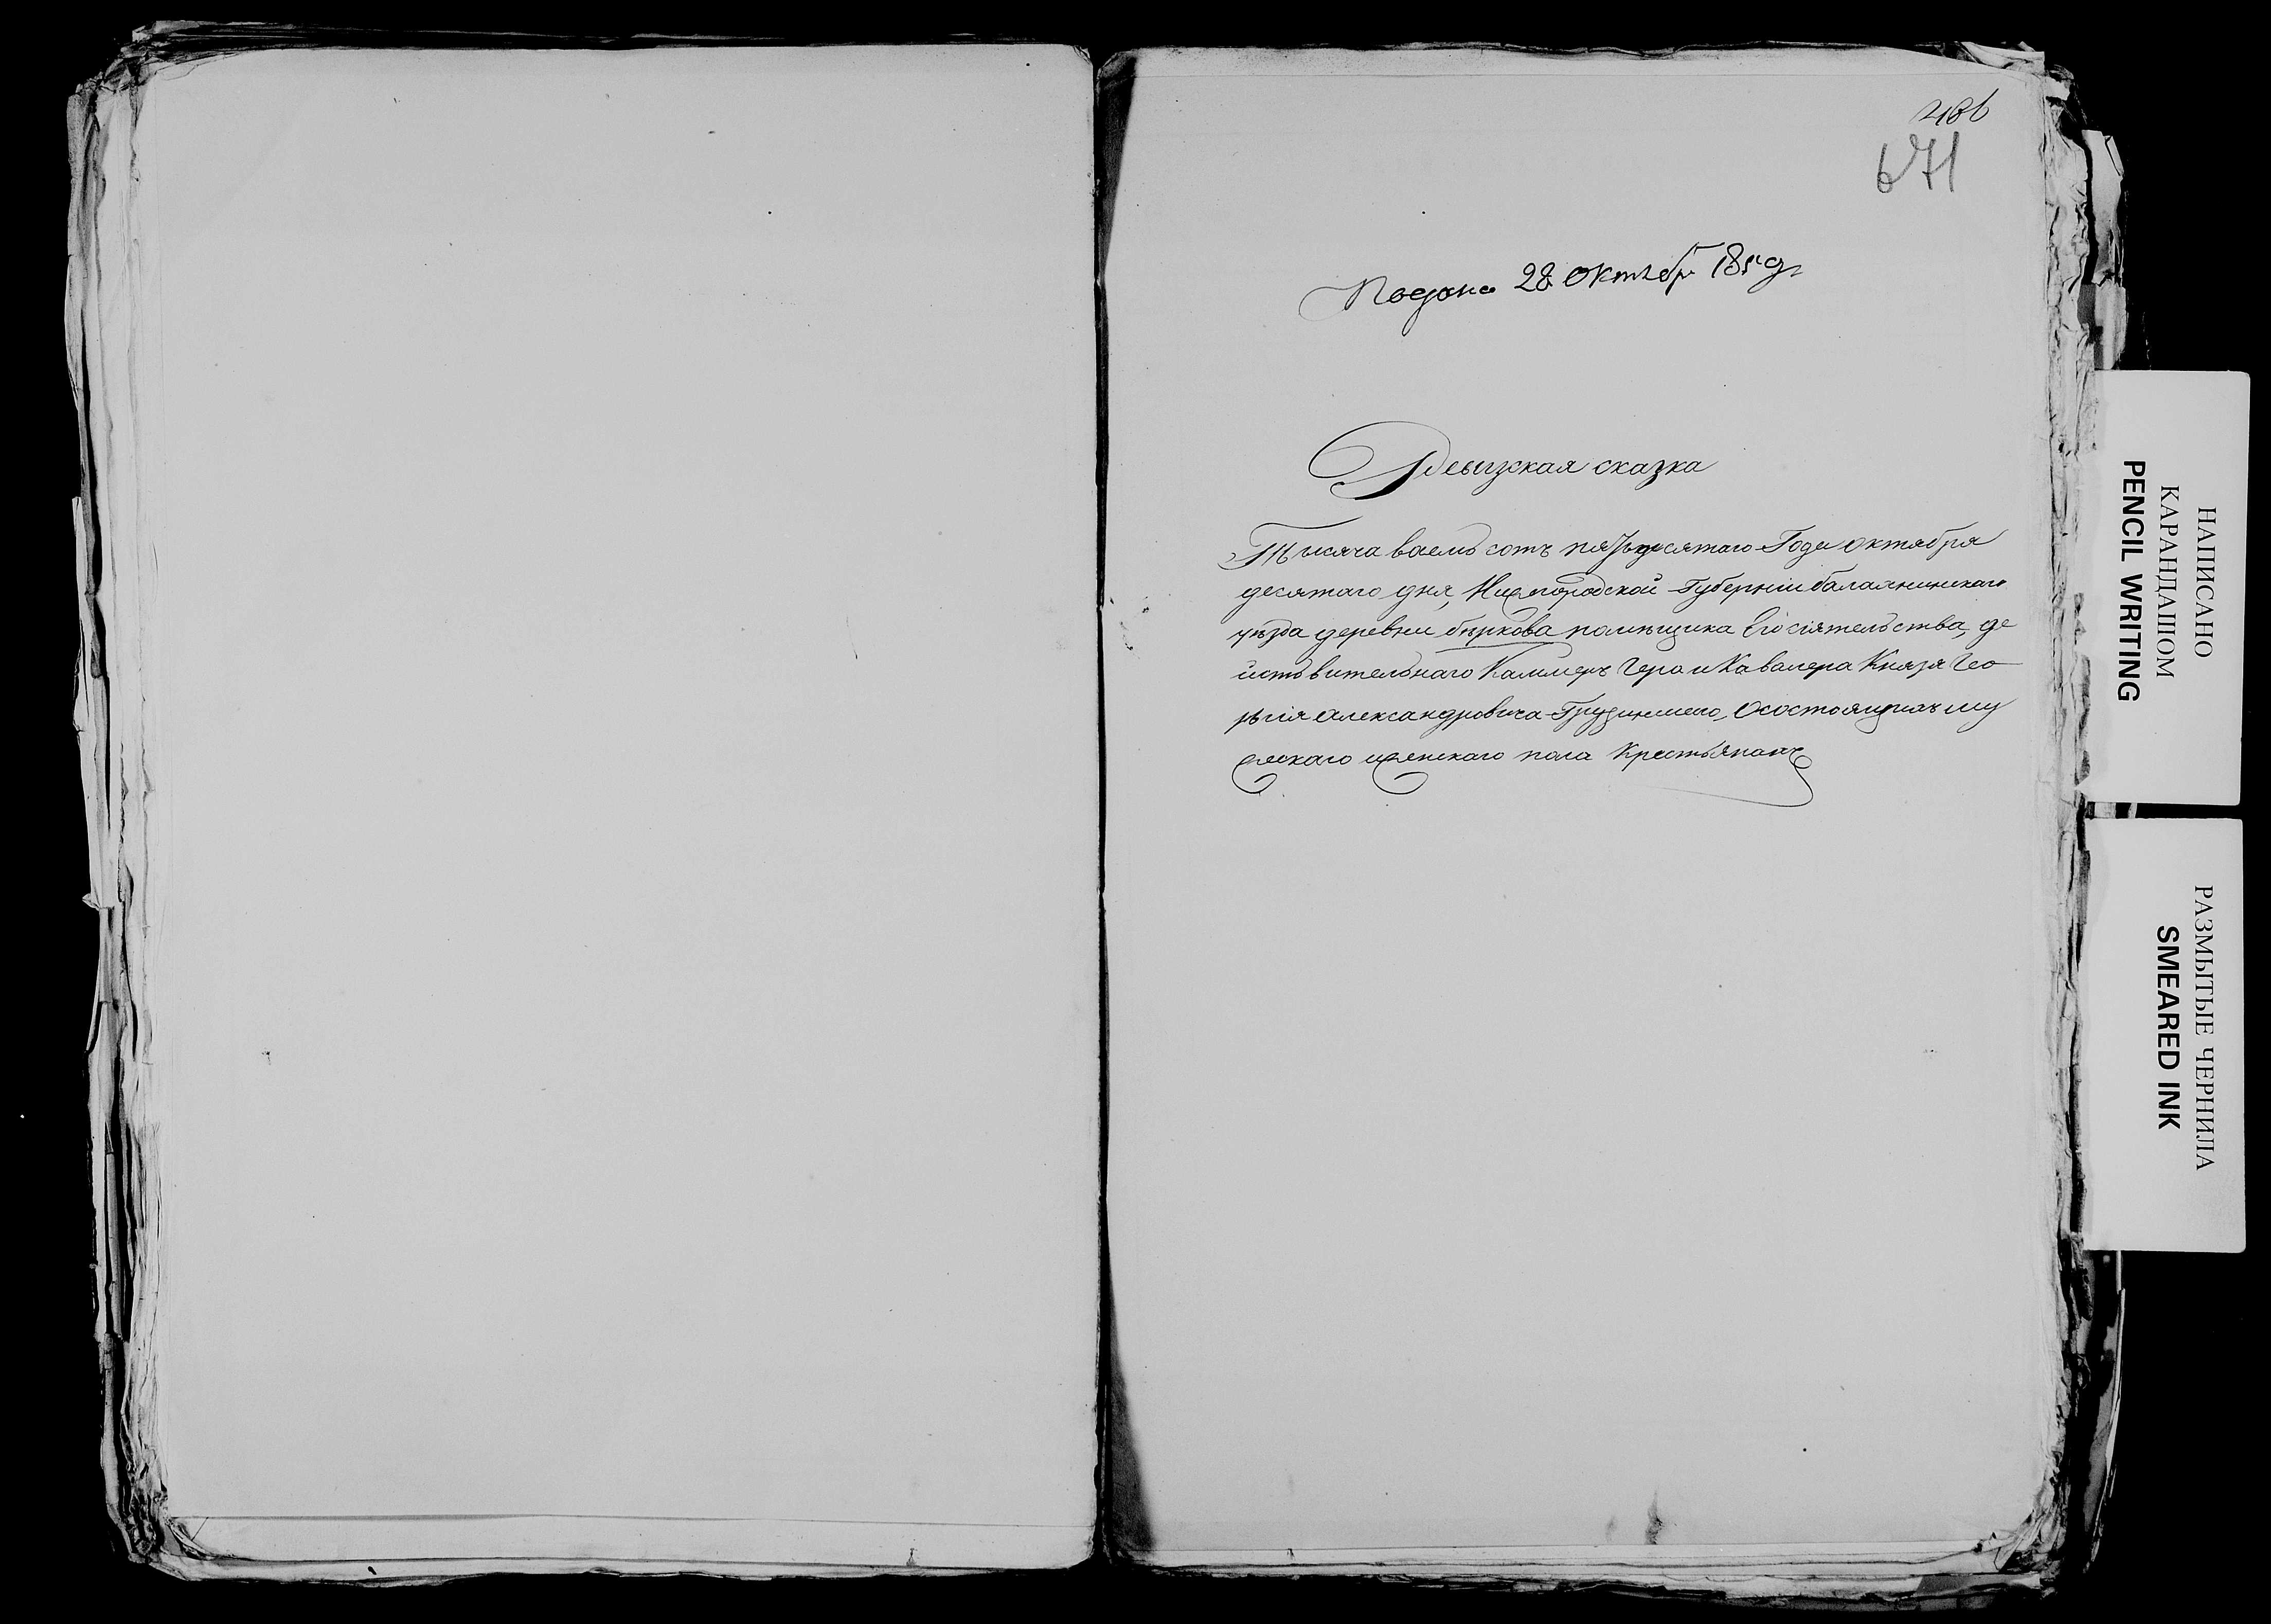 486
671
Подана 28 Октября 1850 г
Ревизская сказка
Тысячаваемь сотъ пятьдесятаго Года октября
десятаго дня, Нижегородской Губернiи балахнинскаго
уѣзда деревни бѣркова помѣщика Его сiятельства, де
йстьвительнаго Каммеръ Гера и Кавалера Князя Гео
ргiя александровича Грузинскаго, О состоящихъ му
жескаго иженскаго пола Крестьянахъ
НАПИСАНО
КАРАНДАШОМ
PENCIL WRITING
РАЗМЫТЫЕ ЧЕРНИЛА
SMEARED INK